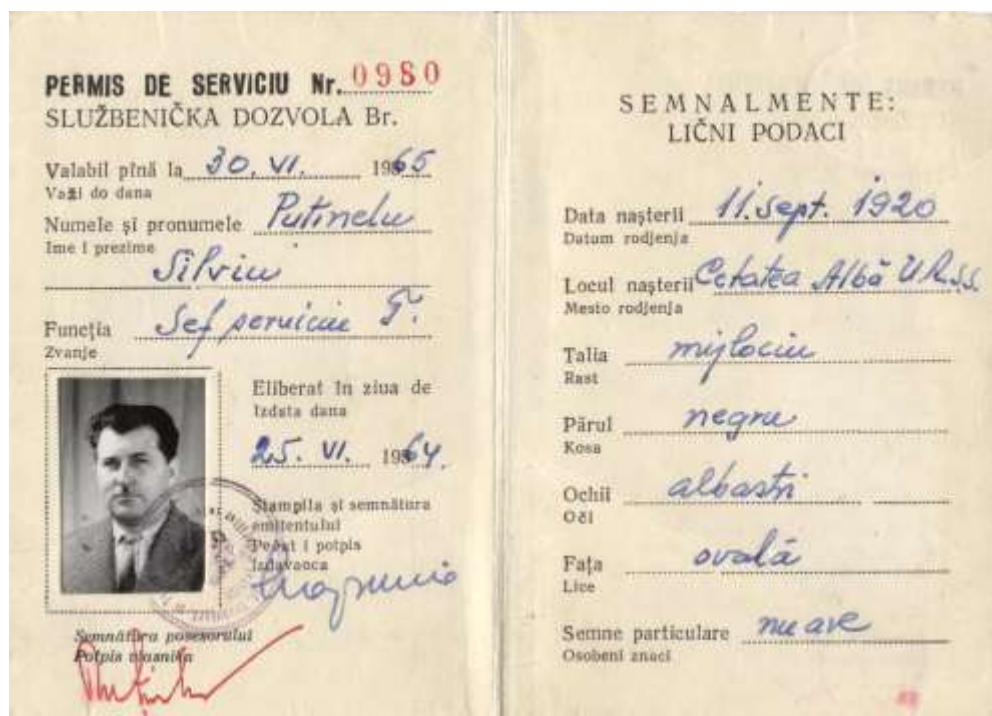 PERMIS DE SERVICIU Nr. 0980
SLUŽBENIČKA DOZVOLA Br.
Valabil pînă la 30. VI. 1965
Važi do dana
Numele și pronumele Putinelu
Ime i prezime
Silviu
Funcția Șef serviciu T.
Zvanje
Eliberat în ziua de
Izdata dana
25. VI. 1964.
Ștampila și semnătura
emitentului
Pečat i potpis
Izdavaoca
Semnătura posesorului
Potpis vlasnika
SEMNALMENTE:
LIČNI PODACI
Data nașterii 11. Sept. 1920
Datum rodjenja
Locul nașterii Cetatea Albă U.R.S.S.
Mesto rodjenja
Talia mijlociu
Rast
Părul negru
Kosa
Ochii albaștri
Oči
Fața ovală
Lice
Semne particulare nu are
Osobeni znaci